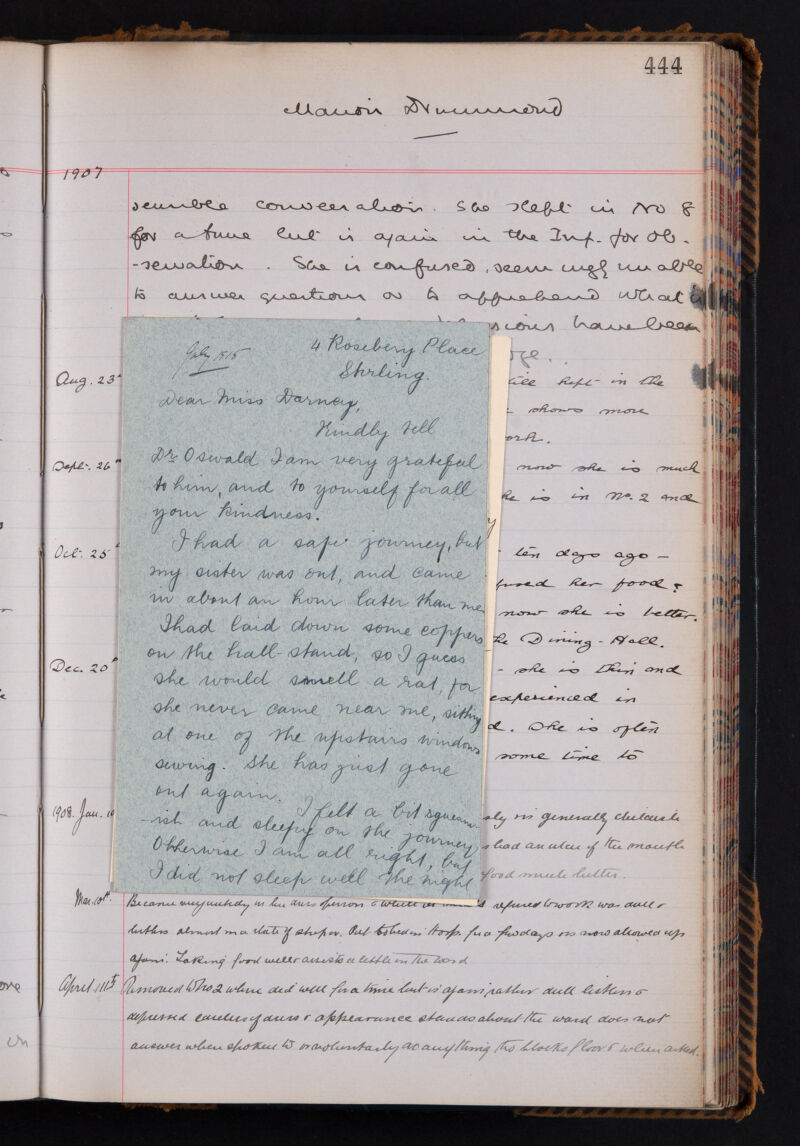 444
Drummond
1907
conversation. She slept in No 8
for a time but is again in the Inf. for ob-
-servation. She is confused, seemingly unable
to answer questions or to apprehend what is
have been
4 Rosebery Place
Stirling.
July 1915
Dear Miss Darney,
Kindly tell
Dr Oswald I am very grateful
to him, and to yourself for all
your kindness.
I had a safe journey, but
my sister was out, and came
in about an hour later than me.
I had laid down some coppers
on the hall-stand, so I guess
she would smell a rat, for
she never came near me, sitting
at one of the upstairs windows
sewing. She has just gone
out again.
I felt a bit squeam-
-ish and sleepy on the journey,
Otherwise I am all right, but
I did not sleep well the night
Aug. 23rd
kept in the
shows more
Sept. 26th
now she is much
is in No. 2 and
Oct. 25th
ten days ago -
her food &
now she is better.
Dining-Hall.
Dec. 20th
- she is thin and
experienced in
She is often
some time to
1908. Jan.
is generally
had an ulcer of the mouth
food much better.
Mar. 10th
Became very untidy in her dress & person & refused to work was dull &
listless almost in a state of stupor. Put to bed in Hosp. for a few days is now allowed up
again. Taking food well & assists a little in the ward
April 11th
Removed to No 2 where did well for a time but is again rather dull listless &
depressed careless of dress & appearance stands about the ward does not
answer when spoken to or voluntarily do anything tho blocks floor & when asked.